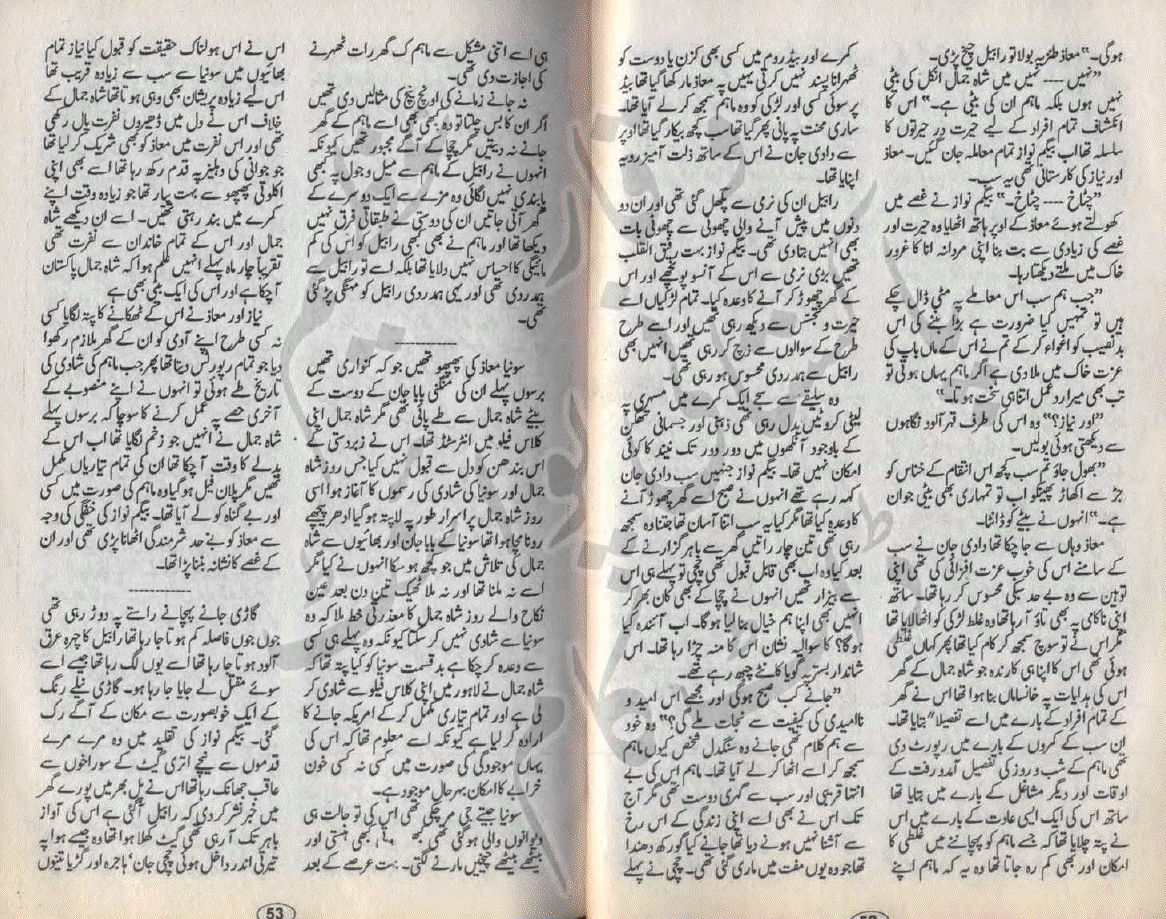 ہوگی۔“ معاذ طنزیہ بولا تو رابیل چیخ پڑی۔
”نہیں ---- نہیں میں شاہ جمال انکل کی بیٹی
نہیں ہوں بلکہ ماہم ان کی بیٹی ہے۔“ اس کا
انکشاف تمام افراد کے لیے حیرت در حیرتوں کا
سلسلہ تھا اب بیگم نواز تمام معاملہ جان گئیں۔ معاذ
اور نیاز کی کارستانی تھی یہ سب۔
”چٹاخ ---- چٹاخ۔“ بیگم نواز نے غصے میں
کھولتے ہوئے معاذ کے اوپر ہاتھ اٹھایا وہ حیرت اور
غصے کی زیادتی سے بت بنا اپنی مردانہ انا کا غرور
خاک میں ملتے دیکھتا رہا۔
”جب ہم سب اس معاملے پہ مٹی ڈال چکے
ہیں تو تمہیں کیا ضرورت ہے بڑا بننے کی اس
بدنصیب کو اغواء کرکے تم نے اس کے ماں باپ کی
عزت خاک میں ملا دی ہے اگر ماہم یہاں ہوتی تو
تب بھی میرا ردعمل اتنا ہی سخت ہوتا۔“
”اور نیاز؟“ وہ اس کی طرف قہر آلود نگاہوں
سے دیکھتی ہوئی بولیں۔
”بھول جاؤ تم سب کچھ اس انتقام کے خناس کو
جڑ سے اکھاڑ پھینکو اب تو تمہاری بھی بیٹی جوان
ہے۔“ انہوں نے بیٹے کو ڈانٹا۔
معاذ وہاں سے جا چکا تھا دادی جان نے سب
کے سامنے اس کی خوب عزت افزائی کی تھی اپنی
توہین سے وہ بے حد سبکی محسوس کر رہا تھا۔ ساتھ
اپنی ناکامی پہ بھی تاؤ آ رہا تھا وہ غلط لڑکی کو اٹھا لایا تھا
مگر اس نے تو سوچ سمجھ کر کام کیا تھا پھر کہاں غلطی
ہوئی تھی اس کا اپنا ہی کارندہ جو شاہ جمال کے گھر
اس کی ہدایات پہ خانساماں بنا ہوا تھا اس نے گھر
کے تمام افراد کے بارے میں اسے تفصیلاً بتایا تھا۔
ان سب کے کمروں کے بارے میں رپورٹ دی
تھی ماہم کے شب و روز کی تفصیل آمد و رفت کے
اوقات اور دیگر مشاغل کے بارے میں بتایا تھا
ساتھ اس کی ایک ایسی عادت کے بارے میں اس
نے پتہ چلایا تھا کہ جسے ماہم کو پہچاننے میں غلطی کا
امکان اور بھی کم رہ جاتا تھا وہ یہ کہ ماہم اپنے
کمرے اور بیڈ روم میں کسی بھی کزن یا دوست کو
ٹھہرانا پسند نہیں کرتی یہیں پہ معاذ مار کھا گیا تھا بیڈ
پر سوئی کسی اور لڑکی کو وہ ماہم سمجھ کر لے آیا تھا۔
ساری محنت پہ پانی پھر گیا تھا سب کچھ بیکار گیا تھا اوپر
سے دادی جان نے اس کے ساتھ ذلت آمیز رویہ
اپنایا تھا۔
رابیل ان کی نرمی سے پگھل گئی تھی اور ان دو
دنوں میں پیش آنے والی چھوٹی سے چھوٹی بات
بھی انہیں بتا دی تھی۔ بیگم نواز بہت رقیق القلب
تھیں بڑی نرمی سے اس کے آنسو پونچھے اور اس
کے گھر چھوڑ کر آنے کا وعدہ کیا۔ تمام لڑکیاں اسے
حیرت و تجسس سے دیکھ رہی تھیں اور اسے طرح
طرح کے سوالوں سے زچ کر رہی تھیں انہیں بھی
رابیل سے ہمدردی محسوس ہو رہی تھی۔
وہ سلیقے سے سجے ایک کمرے میں مسہری پہ
لیٹی کروٹیں بدل رہی تھی ذہنی اور جسمانی تھکن
کے باوجود آنکھوں میں دور دور تک نیند کا کوئی
امکان نہیں تھا۔ بیگم نواز جنہیں سب دادی جان
کہہ رہے تھے انہوں نے صبح اسے گھر چھوڑ آنے
کا وعدہ کیا تھا مگر کیا یہ سب اتنا آسان تھا جتنا وہ سمجھ
رہی تھی تین چار راتیں گھر سے باہر گزارنے کے
بعد کیا وہ اب بھی قابل قبول تھی چچی تو پہلے ہی اس
سے بیزار تھیں انہوں نے چچا کے بھی کان بھر کر
انہیں بھی اپنا ہم خیال بنا لیا ہوگا۔ اب آئندہ کیا
ہوگا؟ کا سوالیہ نشان اس کا منہ چڑا رہا تھا۔ اس
شاندار بستر پہ گویا کانٹے چبھ رہے تھے۔
”جانے کب صبح ہوگی اور مجھے اس امید و
ناامیدی کی کیفیت سے نجات ملے گی؟“ وہ خود
سے ہم کلام تھی جانے وہ سنگدل شخص کیوں ماہم
سمجھ کر اسے اٹھا کر لے آیا تھا۔ ماہم اس کی بے
انتہا قریبی اور سب سے گہری دوست تھی مگر آج
تک اس نے بھی اسے اپنی زندگی کے اس رخ
سے آشنا نہیں ہونے دیا تھا جانے کیا گورکھ دھندا
تھا جو وہ یوں مفت میں ماری گئی تھی۔ چچی نے پہلے
ہی اسے اتنی مشکل سے ماہم کے گھر رات ٹھہرنے
کی اجازت دی تھی۔
نہ جانے زمانے کی اونچ نیچ کی مثالیں دی تھیں
اگر ان کا بس چلتا تو وہ کبھی بھی اسے ماہم کے گھر
جانے نہ دیتیں مگر چچا کے آگے مجبور تھیں کیونکہ
انہوں نے رابیل کے ماہم سے میل و جول پہ کبھی
پابندی نہیں لگائی وہ مزے سے ایک دوسرے کے
گھر آتی جاتیں ان کی دوستی نے طبقاتی فرق نہیں
دیکھا تھا اور ماہم نے کبھی بھی رابیل کو اس کی کم
مائیگی کا احساس نہیں دلایا تھا بلکہ اسے تو رابیل سے
ہمدردی تھی اور یہی ہمدردی رابیل کو مہنگی پڑ گئی
تھی۔
------------
سونیا معاذ کی پھپھو تھیں جو کہ کنواری تھیں
برسوں پہلے ان کی منگنی پاپا جان کے دوست کے
بیٹے شاہ جمال سے طے پائی تھی مگر شاہ جمال اپنی
کلاس فیلو میں انٹرسٹڈ تھا۔ اس نے زبردستی کے
اس بندھن کو دل سے قبول نہیں کیا جس روز شاہ
جمال اور سونیا کی شادی کی رسموں کا آغاز ہوا اسی
روز شاہ جمال پراسرار طور پہ لاپتہ ہو گیا ادھر پیچھے
رونا مچا ہوا تھا سونیا کے پاپا جان اور بھائیوں سے شاہ
جمال کی تلاش میں جو کچھ ہو سکا انہوں نے کیا مگر
اسے نہ ملنا تھا اور نہ ملا ٹھیک تین دن بعد عین
نکاح والے روز شاہ جمال کا معذرتی خط ملا کہ وہ
سونیا سے شادی نہیں کر سکتا کیونکہ وہ پہلے ہی کسی
سے وعدہ کر چکا ہے بدقسمت سونیا کو کیا پتہ تھا کہ
شاہ جمال نے لاہور میں اپنی کلاس فیلو سے شادی کر
لی ہے اور تمام تیاری مکمل کرکے امریکہ جانے کا
ارادہ کر لیا ہے کیونکہ اسے معلوم تھا کہ اس کی
یہاں موجودگی کی صورت میں کسی نہ کسی خون
خرابے کا امکان بہرحال موجود ہے۔
سونیا جیتے جی مر چکی تھی اس کی تو حالت ہی
دیوانوں والی ہو گئی تھی کبھی ہنستی اور
بیٹھے بیٹھے چیخیں مارنے لگتی۔ بہت عرصے کے بعد
اس نے اس ہولناک حقیقت کو قبول کیا نیاز تمام
بھائیوں میں سونیا سے سب سے زیادہ قریب تھا
اس لیے زیادہ پریشان بھی وہی ہوتا تھا شاہ جمال کے
خلاف اس نے دل میں ڈھیروں نفرت پال رکھی
تھی اور اس نفرت میں معاذ کو بھی شریک کر لیا تھا
جو جوانی کی دہلیز پہ قدم رکھ رہا تھا اسے بھی اپنی
اکلوتی پھپھو سے بہت پیار تھا جو زیادہ وقت اپنے
کمرے میں بند رہتی تھیں۔ اسے ان دیکھے شاہ
جمال اور اس کے تمام خاندان سے نفرت تھی
تقریباً چار ماہ پہلے انہیں علم ہوا کہ شاہ جمال پاکستان
آ چکا ہے اور اس کی ایک بیٹی بھی ہے
نیاز اور معاذ نے اس کے ٹھکانے کا پتہ لگایا کسی
نہ کسی طرح اپنے آدمی کو ان کے گھر ملازم رکھوا
دیا جو تمام رپورٹس دیتا تھا پھر جب ماہم کی شادی کی
تاریخ طے ہوئی تو انہوں نے اپنے منصوبے کے
آخری حصے پہ عمل کرنے کا سوچا کہ برسوں پہلے
شاہ جمال نے انہیں جو زخم لگایا تھا اب اس کے
بدلے کا وقت آ چکا تھا ان کی تمام تیاریاں مکمل
تھیں مگر پلان فیل ہو گیا وہ ماہم کی صورت میں کسی
اور بے گناہ کو لے آیا تھا۔ بیگم نواز کی خفگی کی وجہ
سے معاذ کو بے حد شرمندگی اٹھانا پڑی تھی اور ان
کے غصے کا نشانہ بننا پڑا تھا۔
------------
گاڑی جانے پہچانے راستے پہ دوڑ رہی تھی
جوں جوں فاصلہ کم ہوتا جا رہا تھا رابیل کا چہرہ عرق
آلود ہوتا جا رہا تھا اسے یوں لگ رہا تھا جیسے اسے
سوئے مقتل لے جایا جا رہا ہو۔ گاڑی نیلے رنگ
کے ایک خوبصورت سے مکان کے آگے رک
گئی۔ بیگم نواز کی تقلید میں وہ مرے مرے
قدموں سے نیچے اتری گیٹ کے سوراخوں سے
عاقب جھانک رہا تھا اس نے پل بھر میں پورے گھر
میں خبر نشر کر دی کہ رابیل آ گئی ہے اس کی آواز
باہر تک آ رہی تھی گیٹ کھلا ہوا تھا وہ جیسے ہوا پہ
تیرتی اندر داخل ہوئی چچی جان ہاجرہ اور گڑیا تینوں
53